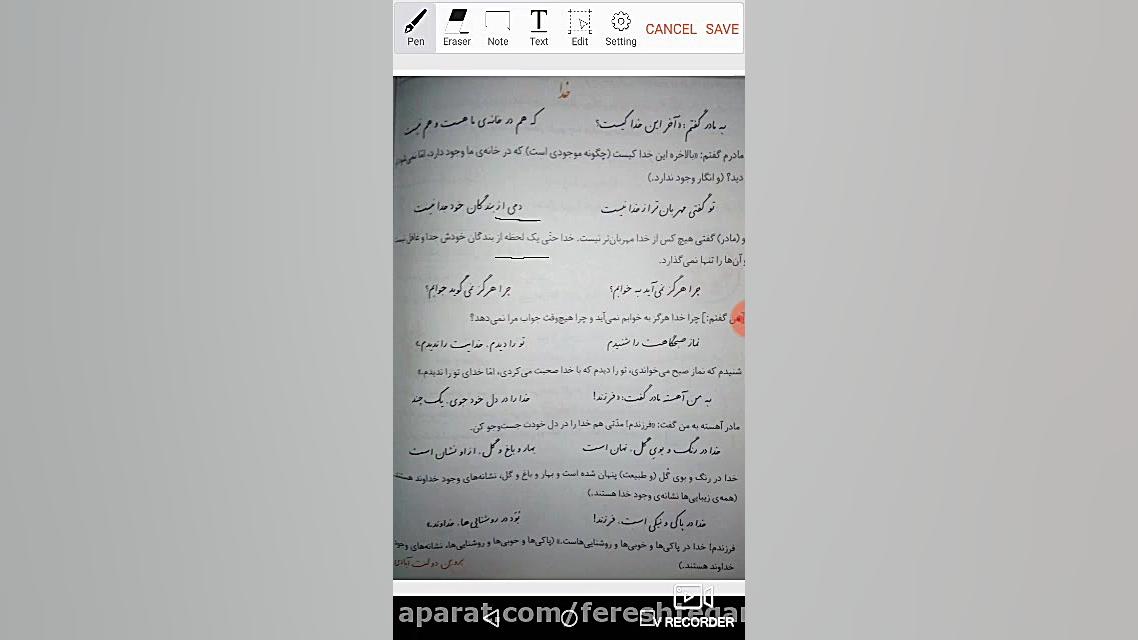 Pen Eraser Note Text Edit Setting CANCEL SAVE
خدا
به مادر گفتم: «آخر این خدا کیست؟ که هم در خانه‌ی ما هست و هم نیست
مادرم گفتم: «بالاخره این خدا کیست (چگونه موجودی است) که در خانه‌ی ما وجود دارد، امّا نمی‌شود
دید؟ (و انگار وجود ندارد.)
تو گفتی مهربان‌تر از خدا نیست دمی از بندگان خود جدا نیست
و (مادر) گفتی هیچ کس از خدا مهربان‌تر نیست. خدا حتّی یک لحظه از بندگان خودش جدا و غافل نیست
و آن‌ها را تنها نمی‌گذارد.
چرا هرگز نمی‌آید به خوابم؟ چرا هرگز نمی‌گوید جوابم؟
[من گفتم:] چرا خدا هرگز به خوابم نمی‌آید و چرا هیچ‌وقت جواب مرا نمی‌دهد؟
نماز صبحگاهت را شنیدم تو را دیدم، خدایت را ندیدم.»
شنیدم که نماز صبح می‌خواندی، تو را دیدم که با خدا صحبت می‌کردی، امّا خدای تو را ندیدم.»
به من آهسته مادر گفت: «فرزند! خدا را در دل خود جوی، یک چند
مادر آهسته به من گفت: «فرزندم! مدّتی هم خدا را در دل خودت جست‌وجو کن.
خدا در رنگ و بوی گل، نهان است بهار و باغ و گل، از او نشان است
خدا در رنگ و بوی گُل (و طبیعت) پنهان شده است و بهار و باغ و گل، نشانه‌های وجود خداوند هستند
(همه‌ی زیبایی‌ها نشانه‌ی وجود خدا هستند.)
خدا در پاکی و نیکی است، فرزند! بُوَد در روشنایی‌ها، خداوند.»
فرزندم! خدا در پاکی‌ها و خوبی‌ها و روشنایی‌هاست.» (پاکی‌ها و خوبی‌ها و روشنایی‌ها، نشانه‌های وجود
خداوند هستند.)
پروین دولت آبادی
aparat.com/fereshtegan
V RECORDER